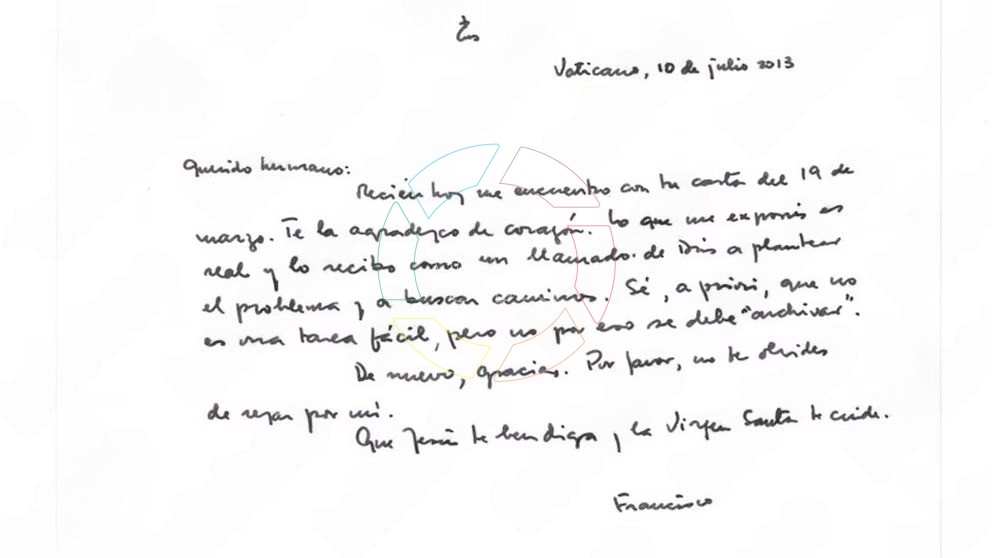 Vaticano, 10 de julio 2013
Querido hermano:
Recién hoy me encuentro con tu carta del 19 de
marzo. Te la agradezco de corazón. Lo que me exponís es
real y lo recibo como un llamado de Dios a plantear
el problema y a buscar caminos. Sé, a priori, que no
es una tarea fácil, pero no por eso se debe "archivar".
De nuevo, gracias. Por favor, no te olvides
de rezar por mí.
Que Jesús te bendiga y la Virgen Santa te cuide.
Francisco